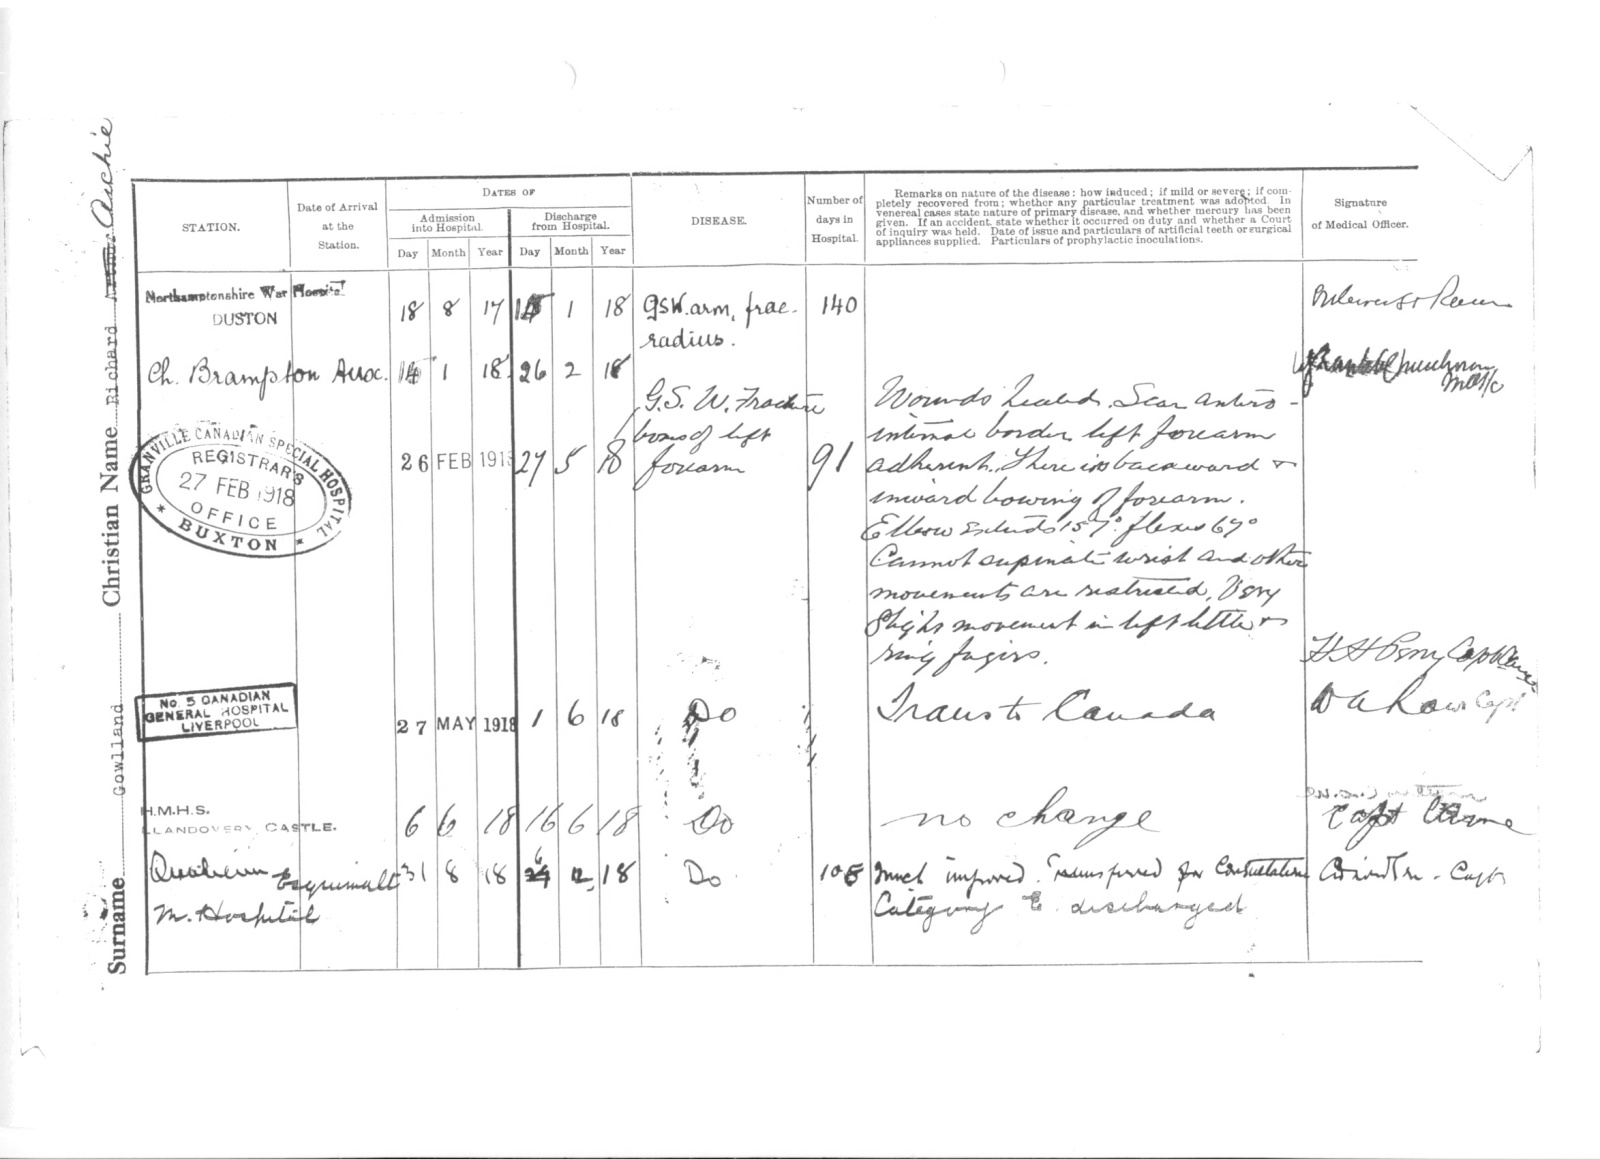 Surname Gowlland Christian Name Richard Archie
STATION.
Date of Arrival
at the
Station.
DATES OF
Admission
into Hospital.
Discharge
from Hospital.
Day Month Year Day Month Year
DISEASE.
Number of
days in
Hospital.
Remarks on nature of the disease: how induced; if mild or severe; if com-
pletely recovered from; whether any particular treatment was adopted. In
venereal cases state nature of primary disease, and whether mercury has been
given. If an accident, state whether it occurred on duty and whether a Court
of inquiry was held. Date of issue and particulars of artificial teeth or surgical
appliances supplied. Particulars of prophylactic inoculations.
Signature
of Medical Officer.
Northamptonshire War Hospital
DUSTON
18 8 17 1 18
GSW. arm, frac.
radius.
140
Ch. Brampton Aux. 1 18. 26 2 18
GRANVILLE CANADIAN SPECIAL HOSPITAL
REGISTRAR'S
27 FEB 1918
OFFICE
* BUXTON *
26 FEB 1918 27 5 18
G. S. W. Fracture
bones of left
forearm
91
Wounds healed. Scar antero-
internal border left forearm
adherent. There is backward &
inward bowing of forearm.
Elbow extends 157° flexes 67°
Cannot supinate wrist and other
movements are restricted. Very
slight movement in left little &
ring fingers.
H H Perry Capt
No. 5 CANADIAN
GENERAL HOSPITAL
LIVERPOOL
27 MAY 1918 1 6 18 Do Trans to Canada Capt
H.M.H.S.
LLANDOVERY CASTLE.
6 6 18 16 6 18 Do no change Capt
Qualicum Esquimalt
M. Hospital
31 8 18 12 18 Do
Much improved. Transferred for Consultation
Category E discharged
Capt